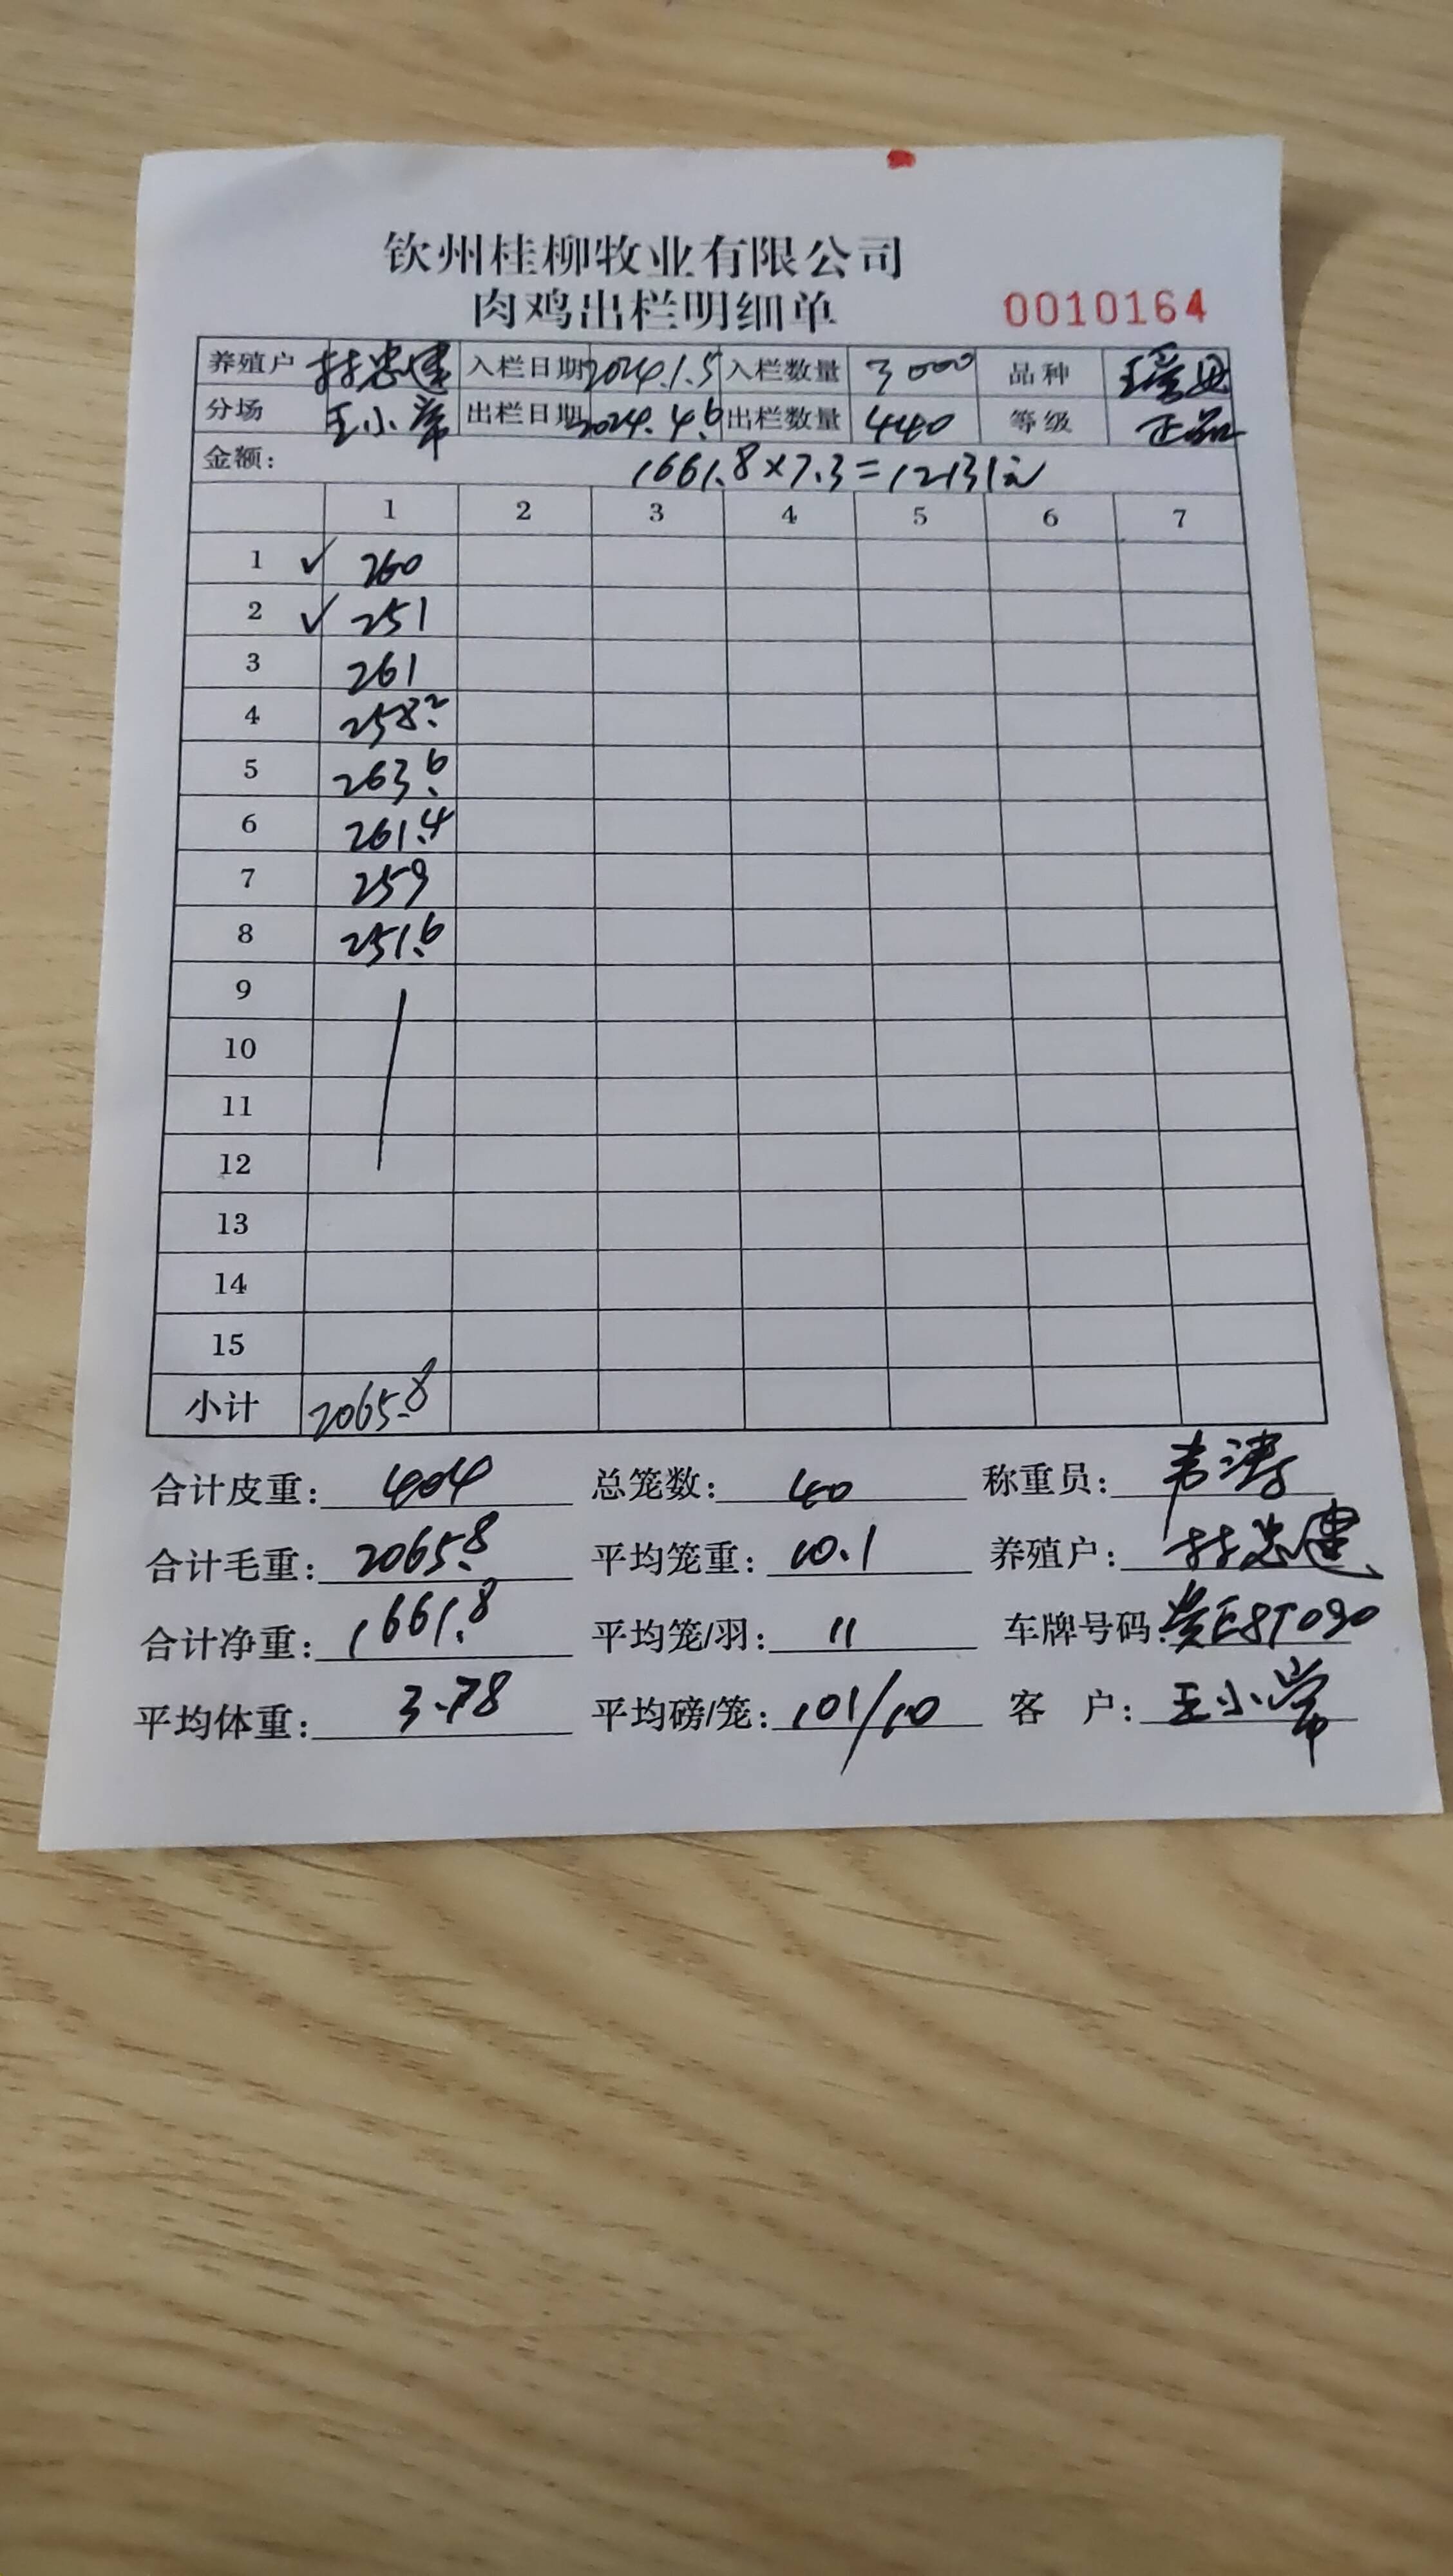 钦州桂柳牧业有限公司
肉鸡出栏明细单 0010164
养殖户 林忠建 入栏日期 2024.1.5 入栏数量 3000 品种
分场 王小常 出栏日期 2024.4.6 出栏数量 440 等级 正品
金额: 1661.8×7.3=12131元
1 2 3 4 5 6 7
1 ✓ 260
2 ✓ 251
3 261
4 258.2
5 263.6
6 261.4
7 259
8 251.6
9
10
11
12
13
14
15
小计 2065.8
合计皮重: 404 总笼数: 40 称重员: 韦涛
合计毛重: 2065.8 平均笼重: 10.1 养殖户: 林忠建
合计净重: 1661.8 平均笼/羽: 11 车牌号码:
平均体重: 3.78 平均磅/笼: 101/10 客 户: 王小常